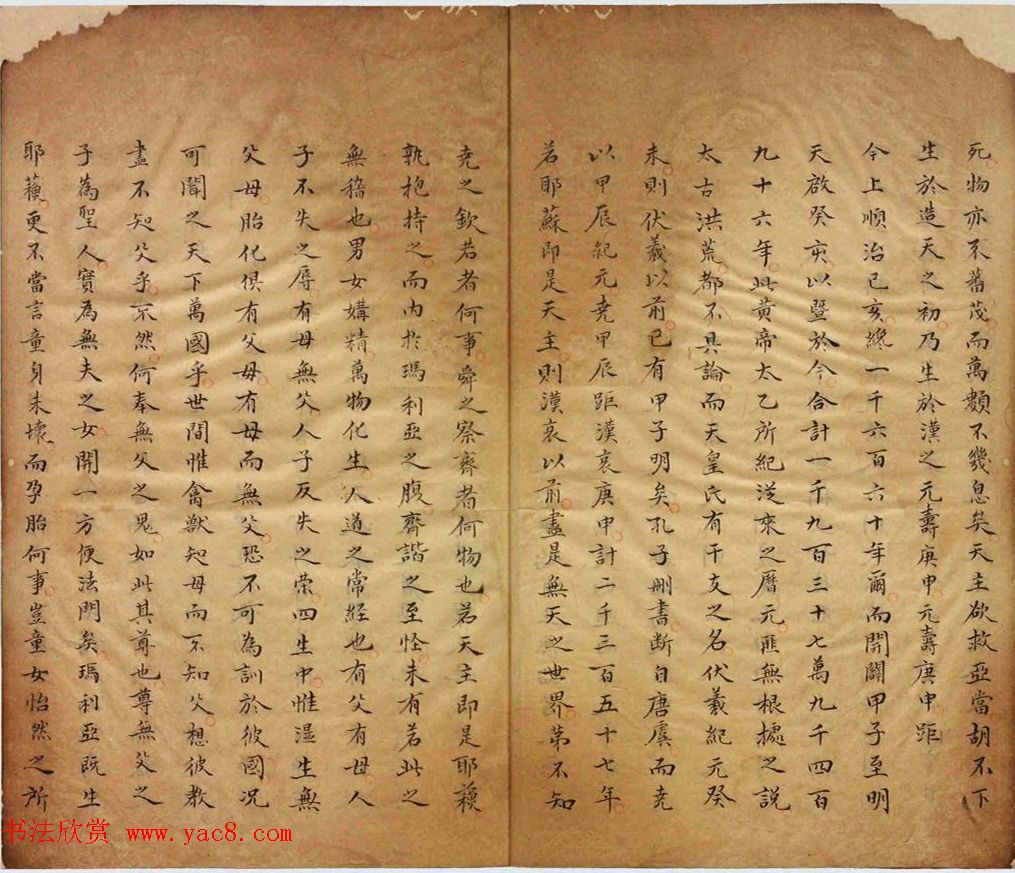 死物亦不蕃茂而萬類不幾息矣天主欲救亞當胡不下
生於造天之初乃生於漢之元壽庚申元壽庚申距
今上順治己亥纔一千六百六十年爾而開闢甲子至明
天啟癸亥以暨於今合計一千九百三十七萬九千四百
九十六年此黃帝太乙所紀從來之曆元匪無根據之說
太古洪荒都不具論而天皇氏有干支之名伏羲紀元癸
未則伏羲以前已有甲子明矣孔子刪書斷自唐虞而堯
以甲辰紀元堯甲辰距漢哀庚申計二千三百五十七年
若耶蘇即是天主則漢哀以前盡是無天之世界第不知
堯之欽若者何事舜之察齊者何物也若天主即是耶穌
孰抱持之而內於瑪利亞之腹齊諧之至怪未有若此之
無稽也男女媾精萬物化生人道之常經也有父有母人
子不失之辱有母無父人子反失之榮四生中惟濕生無
父母胎化俱有父母有母而無父恐不可為訓於彼國況
可聞之天下萬國乎世間惟禽獸知母而不知父想彼教
盡不知父乎不然何奉無父之鬼如此其尊也尊無父之
子為聖人實為無夫之女開一方便法門矣瑪利亞既生
耶穌更不當言童身未壞而孕胎何事豈童女怡然之所
书法欣赏 www.yac8.com